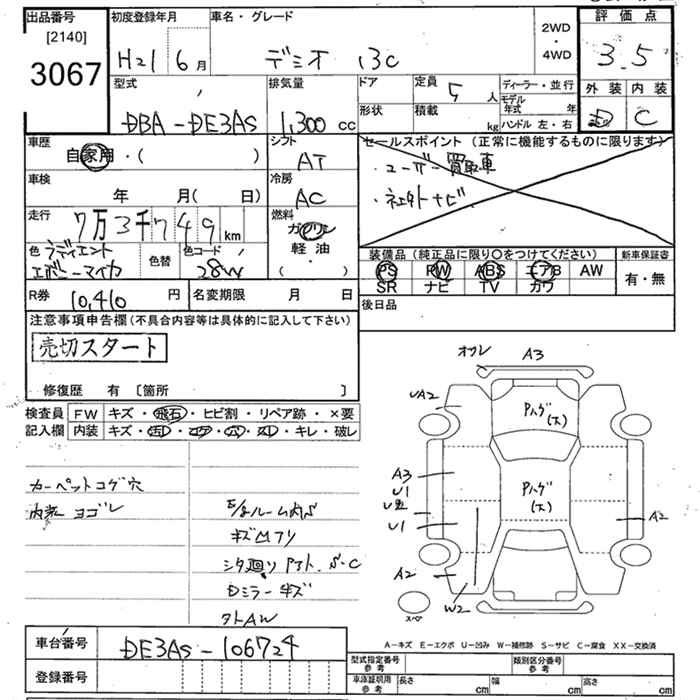 出品番号
[2140]
3067
初度登録年月
H21 6月
車名・グレード
デミオ 13C
2WD
・
4WD
評価点
3.5
外装 内装
D C
型式
DBA-DE3AS
排気量
1,300 cc
ドア
形状
定員 5 人
積載 kg
ディーラー・並行
モデル年式 年
ハンドル 左・右
車歴
自家用・( )
車検
年 月( 日)
走行
7万3千749km
色 ラディエント
エボニーマイカ
色替
色コード
28W
シフト
AT
冷房
AC
燃料
ガソリン
軽油
( )
セールスポイント(正常に機能するものに限ります)
・ユーザー買取車
・社外ナビ
装備品(純正品に限り○をつけてください)
PS PW ABS エアB AW
SR ナビ TV カワ
新車保証書
有・無
後日品
R券 10,410 円
名変期限 月 日
注意事項申告欄(不具合内容等は具体的に記入して下さい)
売切スタート
修復歴 有〔箇所 〕
検査員 FW キズ・飛石・ヒビ割・リペア跡・×要
記入欄 内装 キズ・汚レ・コゲ・穴・スレ・キレ・破レ
カーペットコゲ穴
内装ヨゴレ
キズ凹アリ
Dミラーキズ
外AW
A3
UA2
Pハゲ
(大)
A3
U1
U1
Pハゲ
(大)
A2
A2
W2
スペア
車台番号 DE3AS-106724
登録番号
A-キズ E-エクボ U-凹み W-補修跡 S-サビ C-腐食 XX-交換済
型式指定番号
参考
類別区分番号
参考
車庫証明用
参考
長さ cm 幅 cm 高さ cm